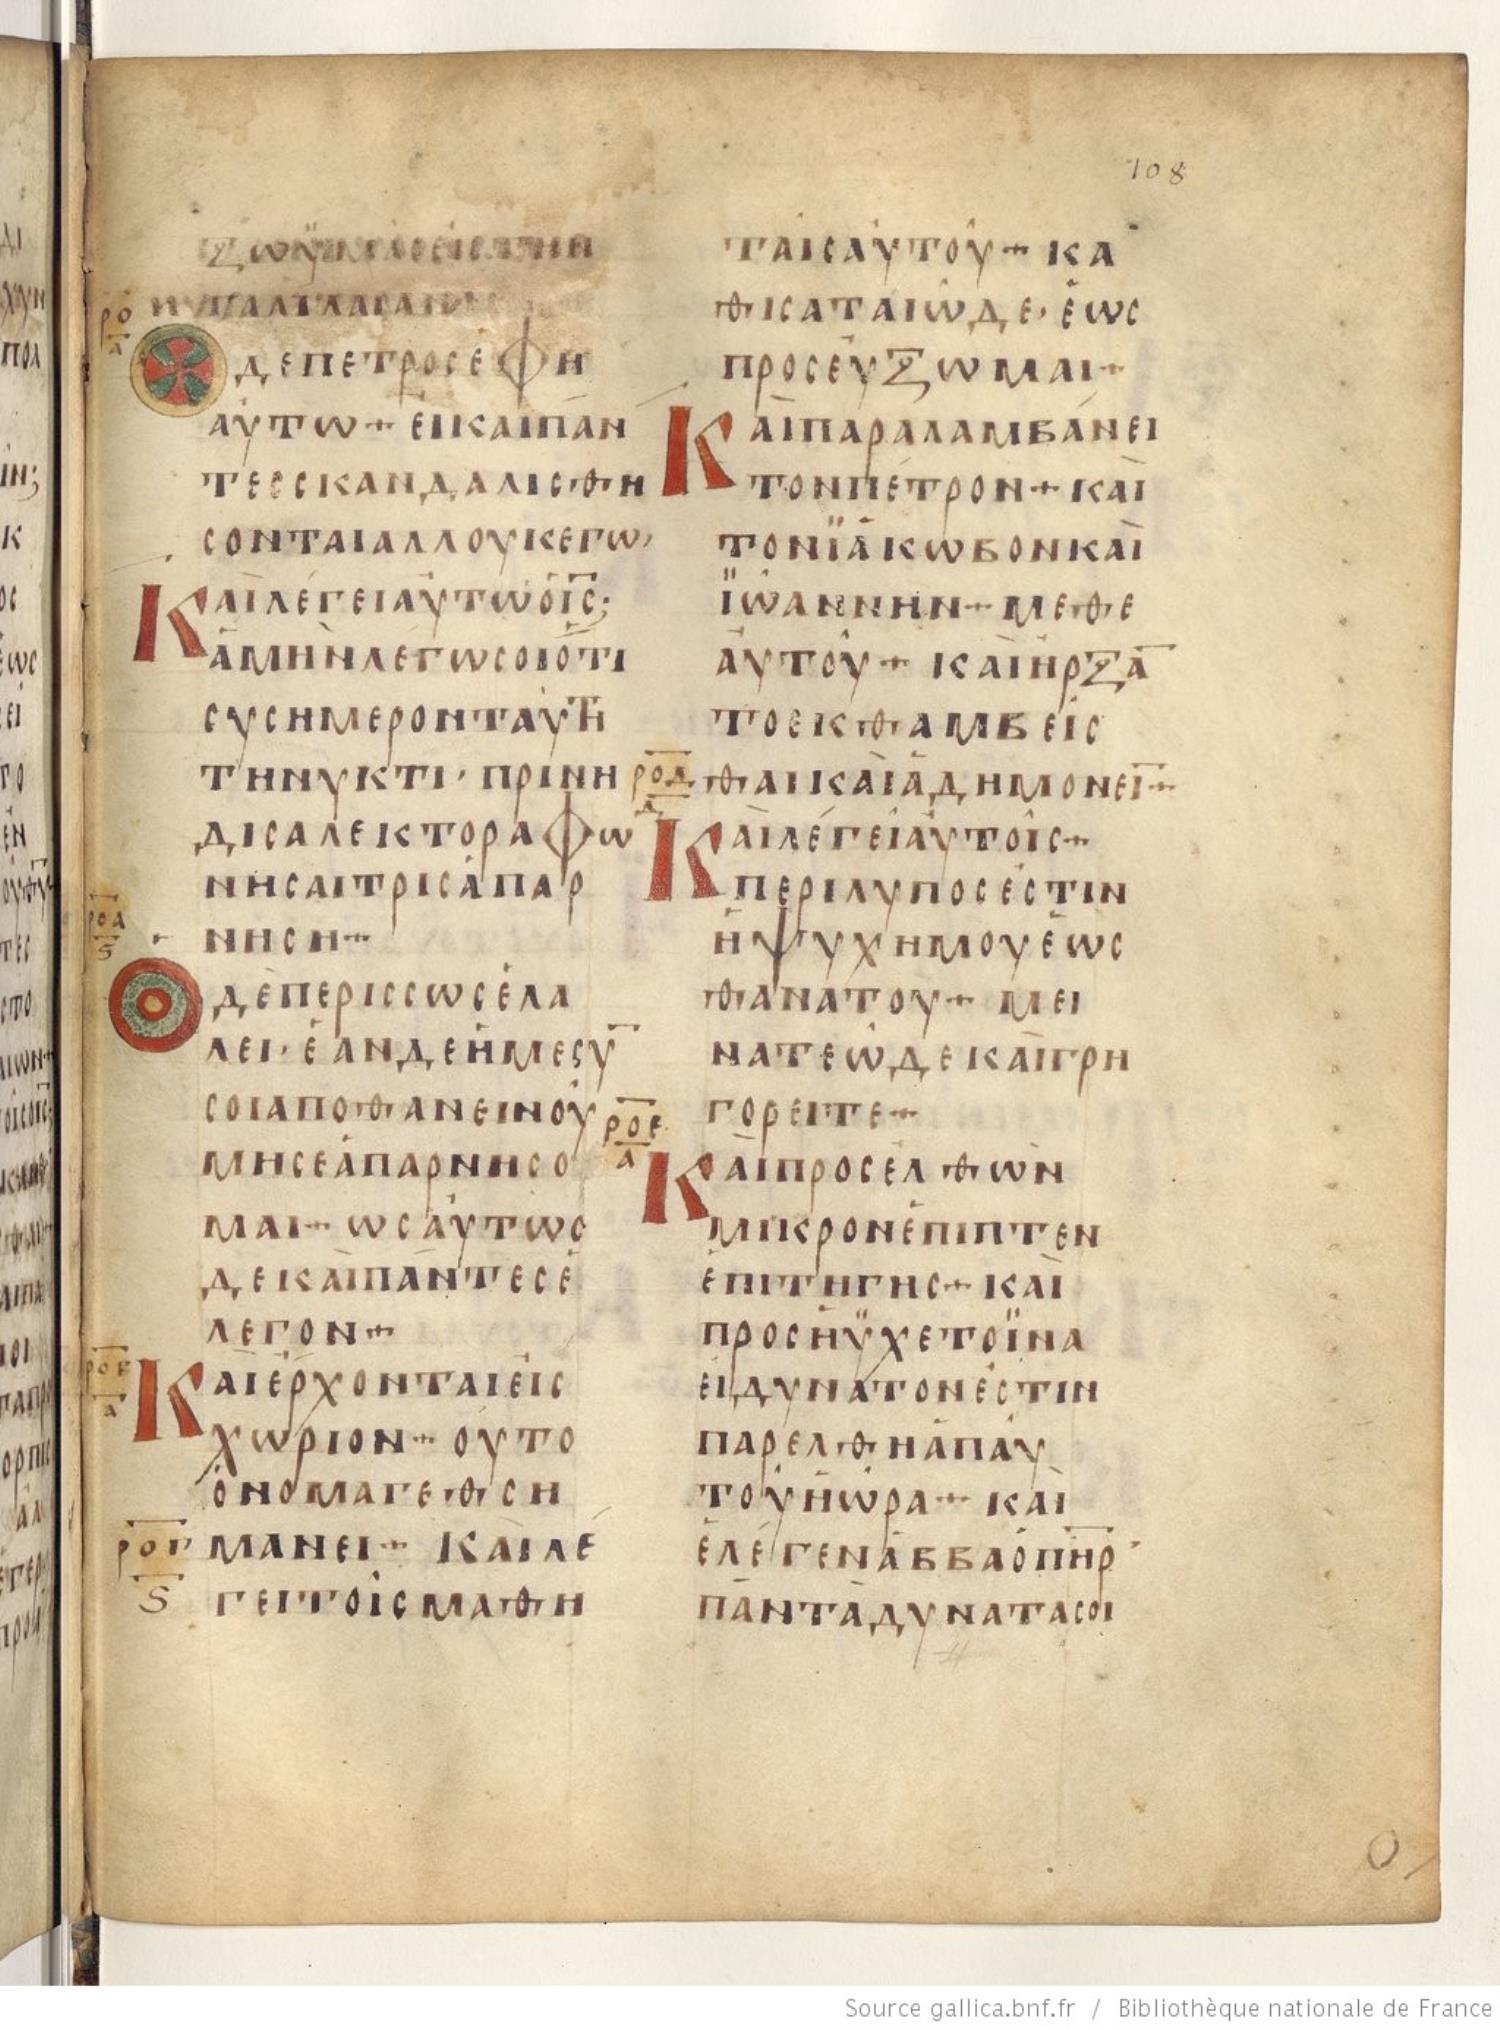 108
ξω ϋμασ εισ την
γαλιλαιαν
ρο
α
Ο δε πετροσ εφη
αυτω + ει και παν
τεσ σκανδαλισθη
σονται αλλ ουκ εγω,
Και λεγει αυτω ο ισ;
αμην λεγω σοι οτι
συ σημερον ταυτη
τη νυκτι, πριν η
δισ αλεκτορα φω
νησαι τρισ απαρ
νηση +
ροα
ς
Ο δε περισσωσ ελα
λει, εαν δεη με συ
σοι αποθανειν ου
μη σε απαρνησο
μαι + ωσαυτωσ
δε και παντεσ ε
λεγον +
ροβ
α
Και ερχονται εισ
χωριον + ου το
ονομα γεθση
μανει + και λε
ρογ
ς
γει τοισ μαθη
ταισ αυτου + κα
θισαται ωδε, εωσ
προσευξωμαι +
Και παραλαμβανει
τον πετρον + και
τον ϊακωβον και
ϊωαννην + μεθ ε
αυτου + και ηρξα
το εκθαμβεισ
θαι και αδημονει +
ροδ
δ
Και λεγει αυτοισ +
περιλυποσ εστιν
η ψυχη μου εωσ
θανατου + μει
νατε ωδε και γρη
γορειτε +
ροε
α
Και προσελθων
μικρον επιπτεν
επι τη γησ + και
προσηϋχετο ϊνα
ει δυνατον εστιν
παρελθη απ αυ
του η ωρα + και
ελεγεν αββα ο πηρ
παντα δυνατα σοι
Source gallica.bnf.fr / Bibliothèque nationale de France